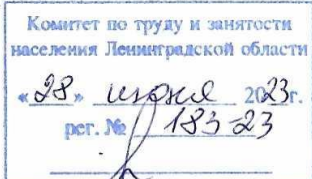 Комитет по труду и занятости
населения Ленинградской области
«28» июня 2023г.
рег. № 183-23